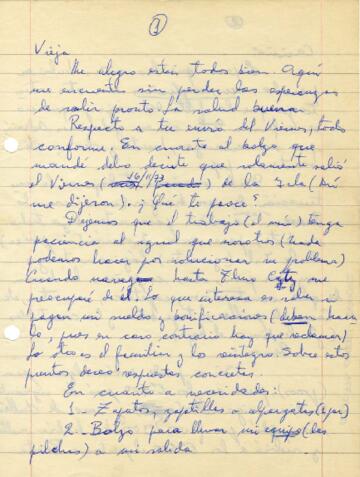 1
Vieja
Me alegro estén todos bien Aquí
me encuentro sin perder las esperanzas
de salir pronto. La salud buena.
Respecto a tu envío del Viernes, todo
conforme. En cuanto al bolso que
mandé debo decirte que solamente salió
el Viernes ( 16/11/73 ) de la Isla (Así
me dijeron). ¿Qué te parece?
Díjenos que el trabajo (el mío) tenga
paciencia al igual que nosotros (nada
podemos hacer por solucionar su problema)
Cuando hasta me
preocuparé de él. Lo que interesa es saber si
pagan mi sueldo y bonificaciones (deben hacer
lo, pues en caso contrario hay que reclamar)
Lo otro es el y los reintegros. Sobre estos
puntos deseo respuestas concretas.
En cuanto a necesidades:
1.- Zapatos, zapatillas o alpargatas
2.- Bolso para llevar mi equipo (las
pilchas) a mi salida